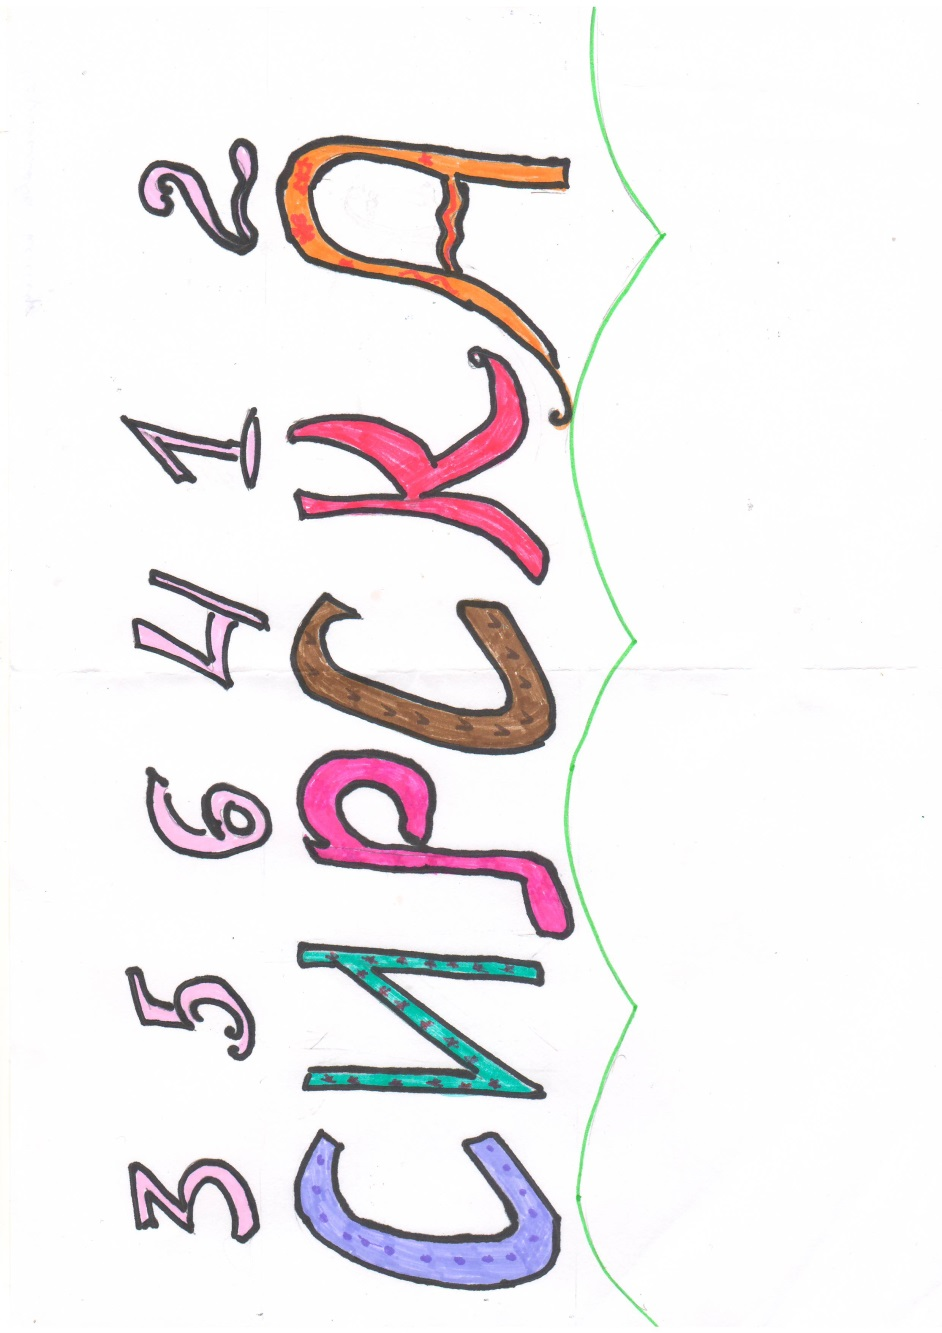 3 5 6 4 1 2
СИРСКА